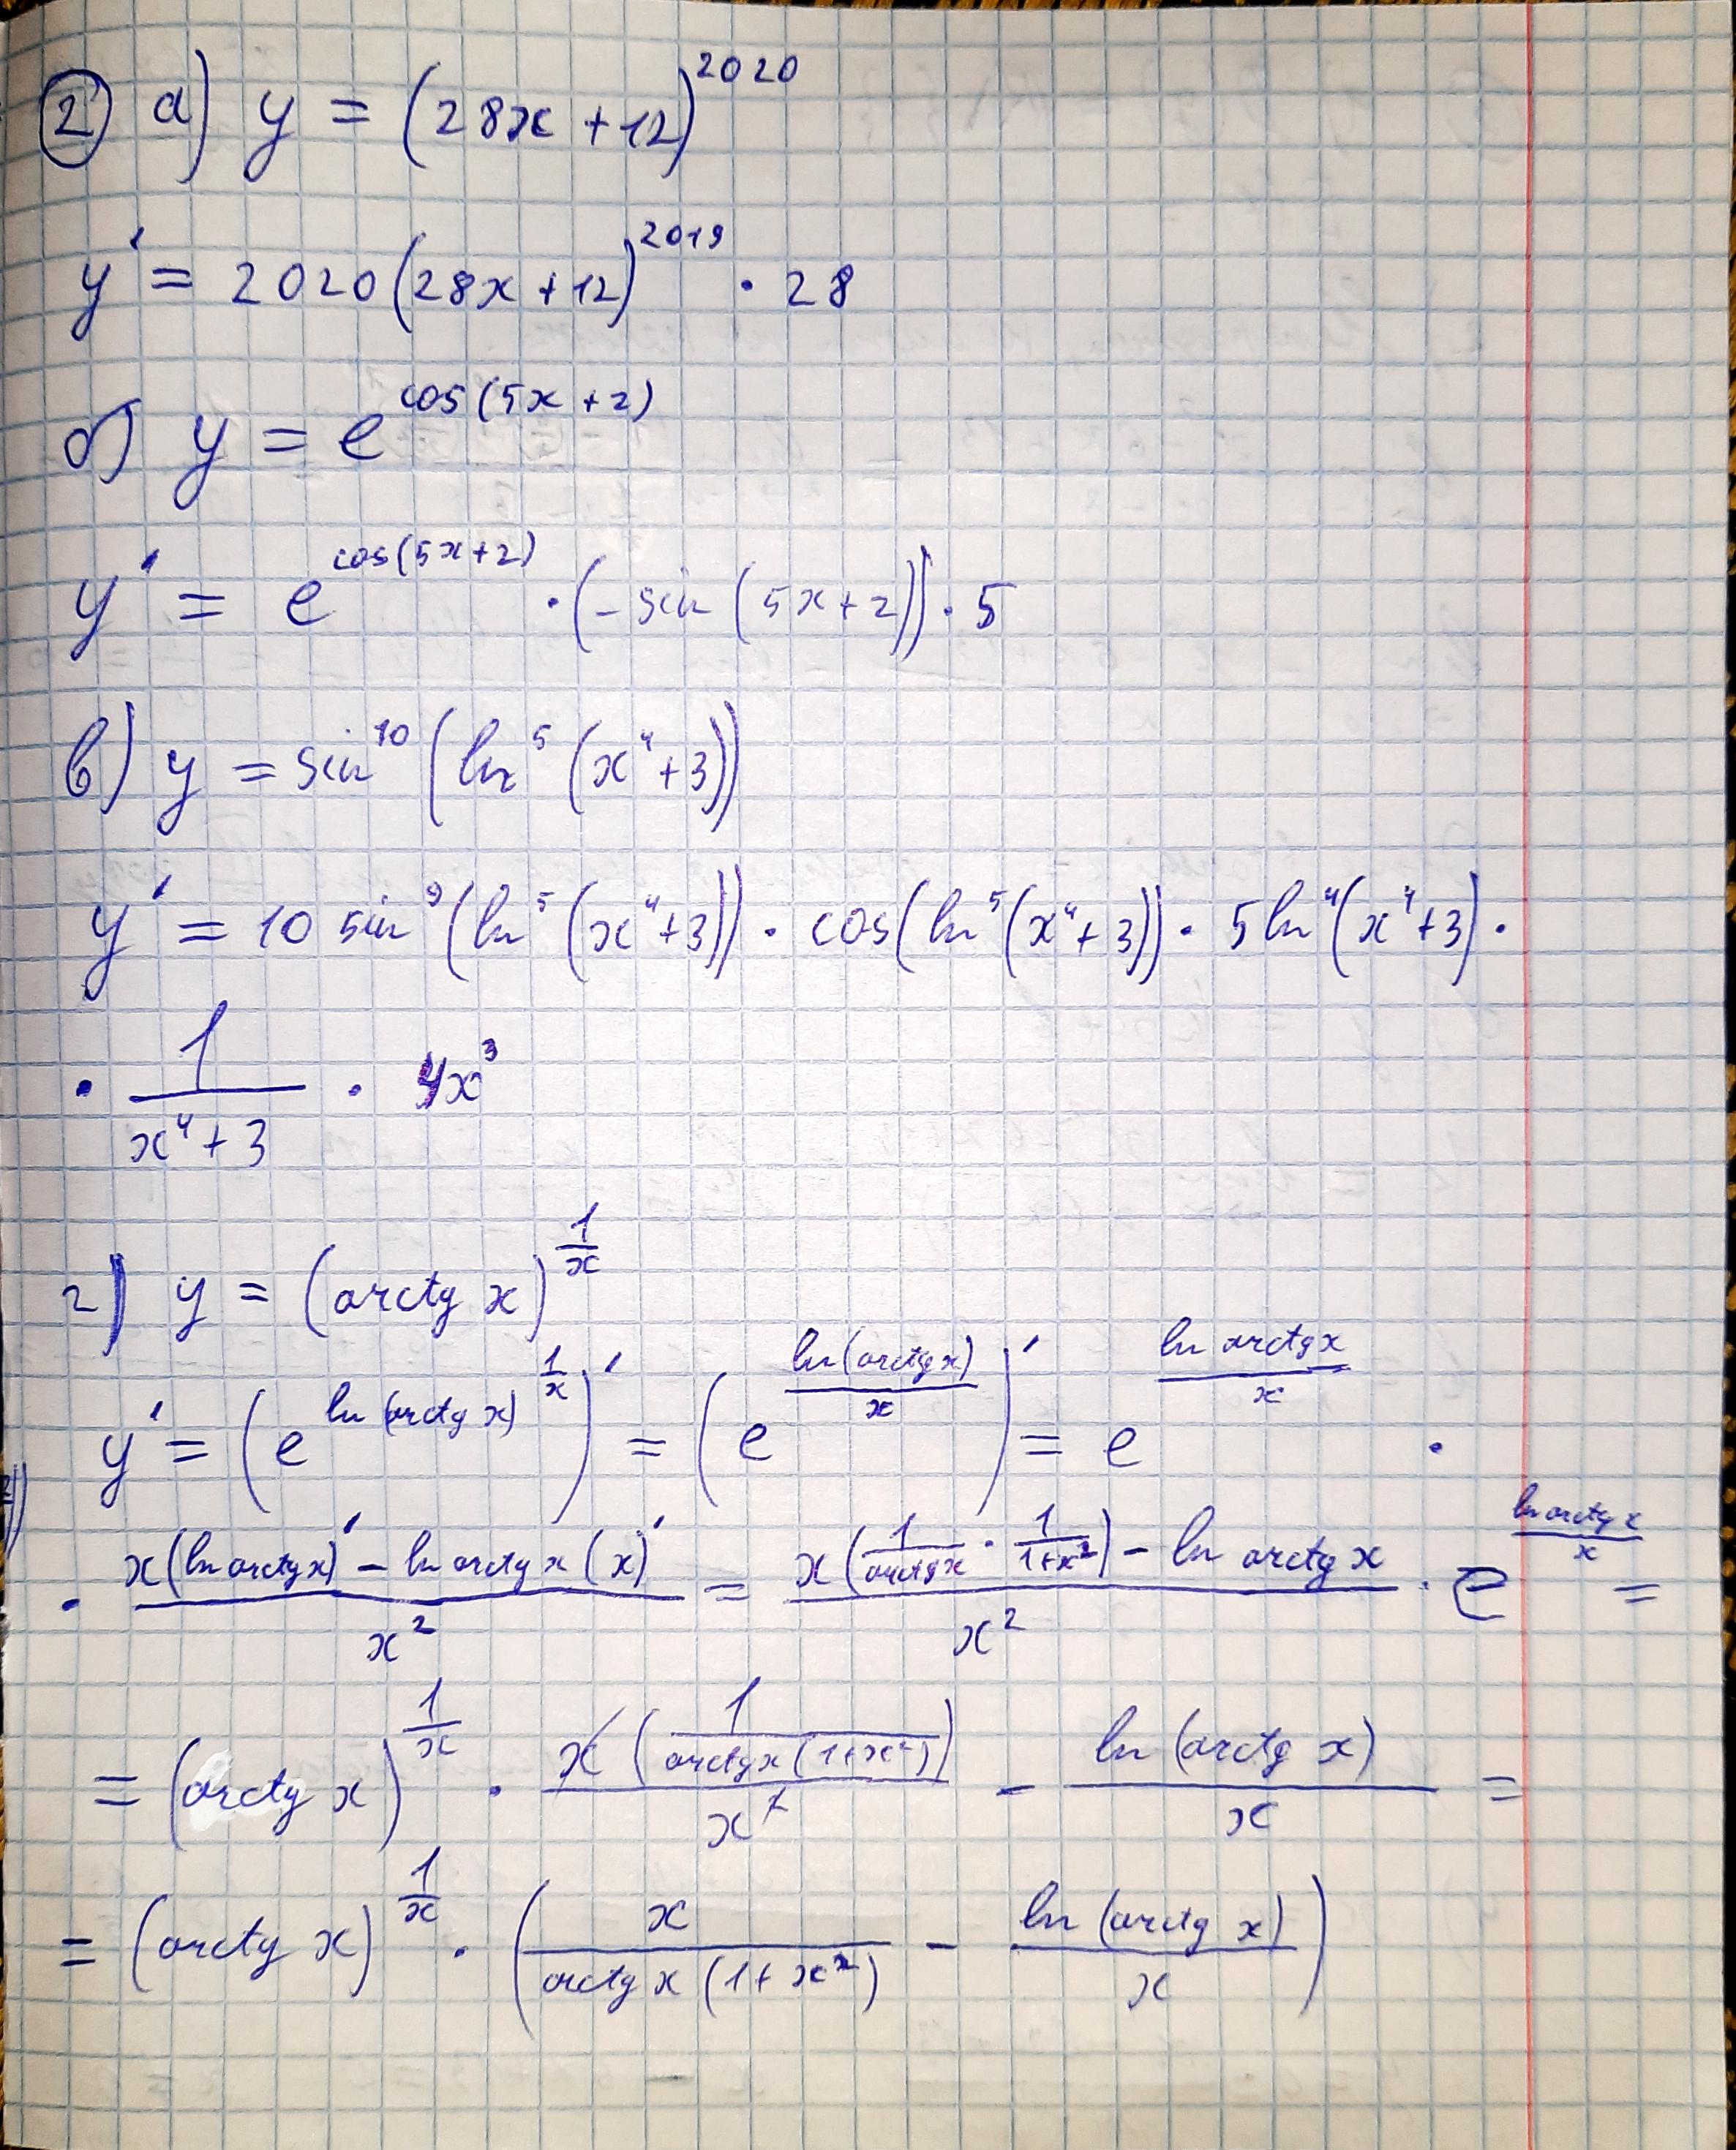 ② а) y = (28x + 12)^2020
y' = 2020(28x + 12)^2019 · 28
б) y = e^cos(5x + 2)
y' = e^cos(5x + 2) · (- sin (5x + 2)) · 5
в) y = sin^10 (ln^5 (x^4 + 3))
y' = 10 sin^9 (ln^5 (x^4 + 3)) · cos(ln^5 (x^4 + 3)) · 5 ln^4 (x^4 + 3) ·
· 1/(x^4 + 3) · 4x^3
г) y = (arctg x)^(1/x)
y' = (e^(ln (arctg x)^(1/x)))' = (e^(ln(arctg x)/x))' = e^(ln arctg x/x) ·
· (x(ln arctg x)' - ln arctg x (x)')/x^2 = (x(1/(arctg x) · 1/(1+x^2)) - ln arctg x)/x^2 · e^(ln arctg x/x) =
= (arctg x)^(1/x) · (x (1/(arctg x (1+x^2))))/x^2 - ln (arctg x)/x =
= (arctg x)^(1/x) · (x/(arctg x (1 + x^2)) - ln (arctg x)/x)